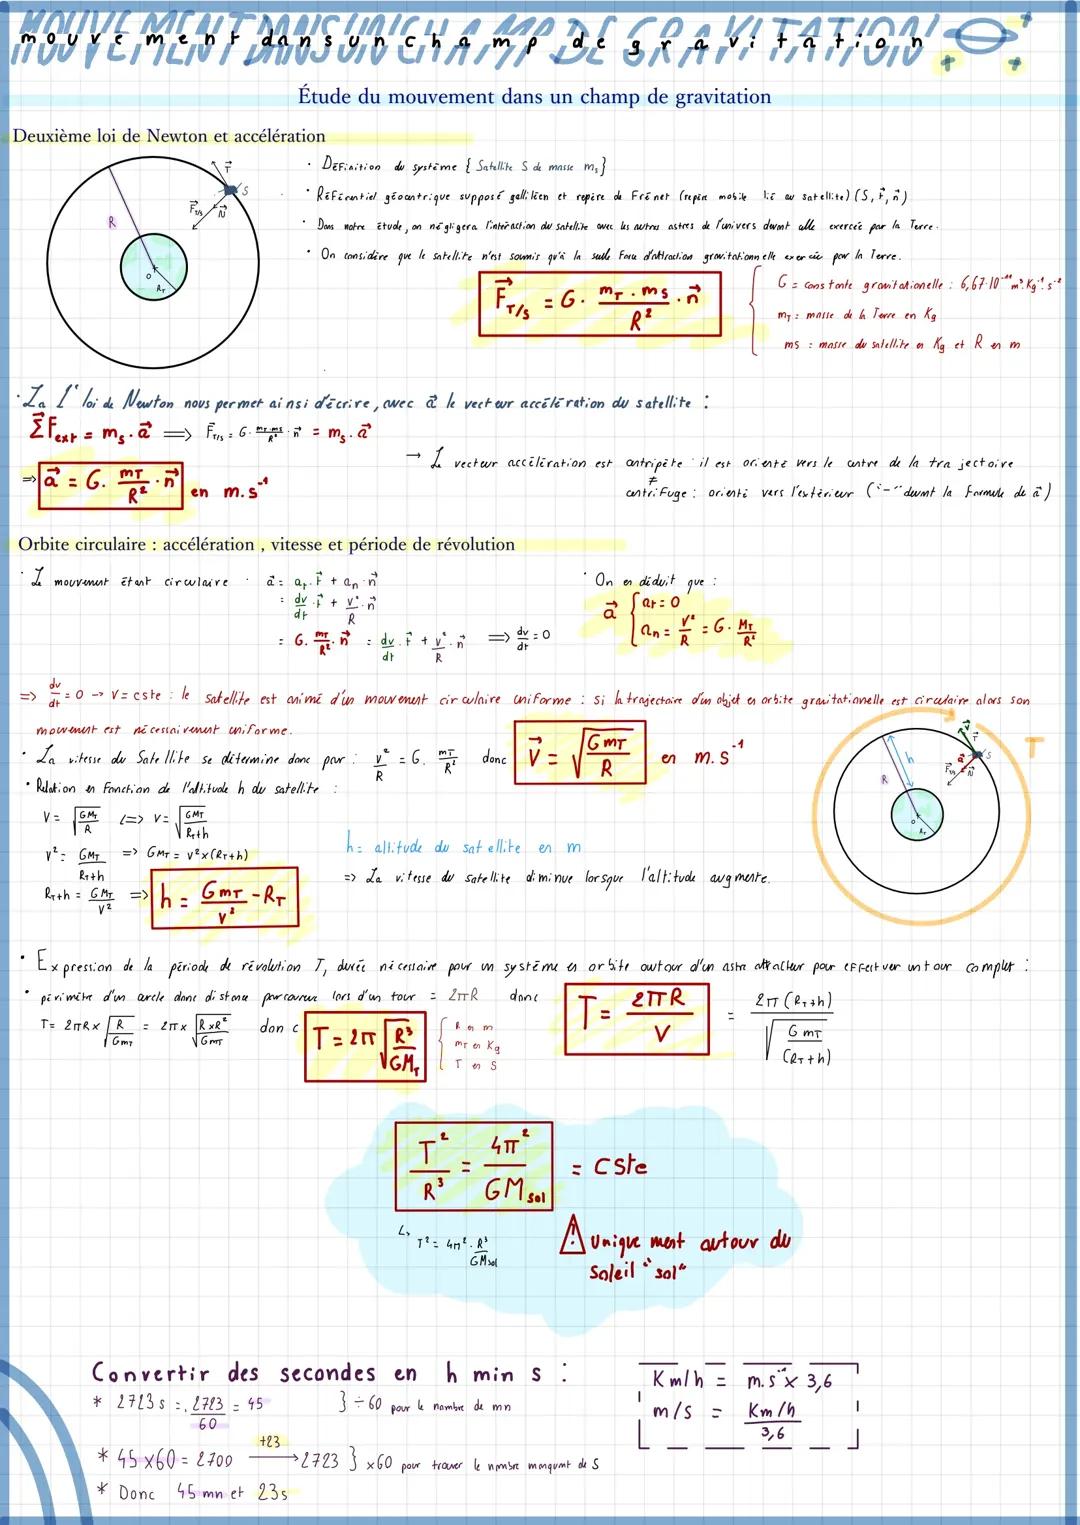 MOUVEMENT DANS UN CHAMP DE GRAVITATION
mouvement dans un champ de gravitation
Étude du mouvement dans un champ de gravitation
Deuxième loi de Newton et accélération
· Définition du système { Satellite S de masse ms }
· Référentiel géocentrique supposé galliléen et repère de Frénet (repère mobile lié au satellite) (S, t⃗, n⃗)
· Dans notre étude, on négligera l'intéraction du satellite avec les autres astres de l'univers devant celle exercée par la Terre.
· On considère que le satellite n'est soumis qu'à la seule Force d'attraction gravitationnelle exercée par la Terre.
R O RT F⃗T/S N⃗ T⃗ S
F⃗T/S = G. mT.mS/R² .n⃗
G = constante gravitationelle : 6,67.10⁻¹¹ m³.Kg⁻¹.s⁻²
mT = masse de la Terre en Kg
ms = masse du satellite en Kg et R en m
· La 2° loi de Newton nous permet ainsi d'écrire, avec a⃗ le vecteur accélération du satellite :
ΣF⃗ext = ms.a⃗ => F⃗T/S = G. mT.mS/R² .n⃗ = ms.a⃗
=> a⃗ = G. mT/R² .n⃗ en m.s⁻¹
→ Le vecteur accélération est centripète : il est orienté vers le centre de la trajectoire
≠
centrifuge : orienté vers l'extérieur ("-" devant la formule de a⃗)
Orbite circulaire : accélération , vitesse et période de révolution
· Le mouvement étant circulaire : a⃗ = at.t⃗ + an.n⃗
= dv/dt .t⃗ + v²/R .n⃗
= G. mT/R² .n⃗ = dv/dt .t⃗ + v²/R .n⃗ => dv/dt = 0
· On en déduit que :
a⃗ { at = 0
an = V²/R = G. MT/R²
=> dv/dt = 0 → V = cste : le satellite est animé d'un mouvement circulaire uniforme : si la trajectoire d'un objet en orbite gravitationnelle est circulaire alors son
mouvement est nécessairement uniforme.
· La vitesse du Satellite se détermine donc par : v²/R = G. mT/R² donc V⃗ = √(GmT/R) en m.s⁻¹
· Relation en fonction de l'altitude h du satellite :
V = √(GMT/R) <=> V = √(GMT/(RT+h))
V² = GMT/(RT+h) => GMT = V²x(RT+h)
RT+h = GMT/V² => h = GmT/v² - RT
h = altitude du satellite en m
=> La vitesse du satellite diminue lorsque l'altitude augmente.
R h O RT F⃗T/S N⃗ T⃗ S T
· Expression de la période de révolution T, durée nécessaire pour un système en orbite autour d'un astre attracteur pour effectuer un tour complet :
· périmètre d'un cercle donc distance parcourue lors d'un tour = 2πR donc T = 2πR/V = 2π(RT+h)/√(GmT/(RT+h))
T = 2πR x √(R/GmT) = 2π x √(RxR²/GmT) donc T = 2π√(R³/GMT)
{ R en m
mT en Kg
T en S
T²/R³ = 4π²/GMsol = cste
↳ T² = 4π². R³/GMsol
⚠ Uniquement autour du
soleil "sol"
Convertir des secondes en h min s :
* 2723 s = 2723/60 = 45 } ÷60 pour le nombre de mn
* 45 x60 = 2700 +23 → 2723 } x60 pour trouver le nombre manquant de S
* Donc 45 mn et 23s
Km/h = m.s⁻¹ x 3,6
m/s = Km/h / 3,6